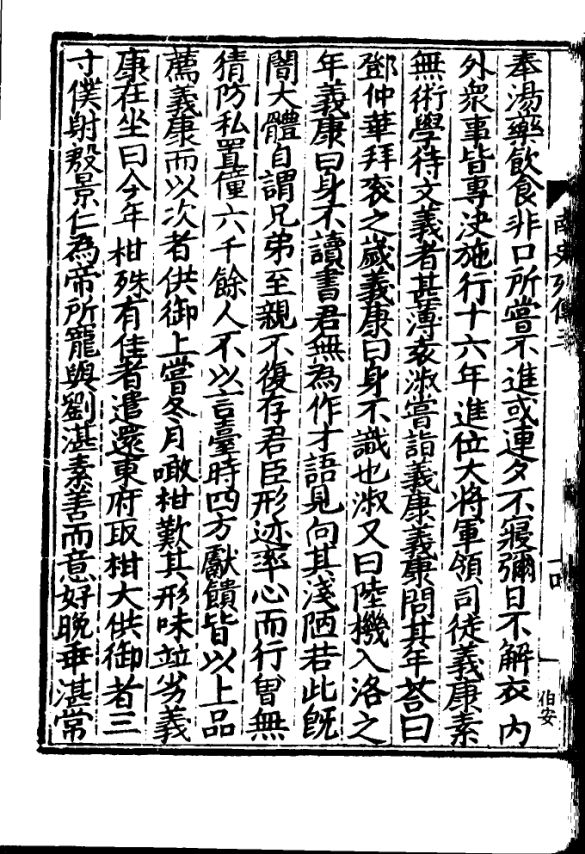 奉湯藥飲食非口所嘗不進或連夕不寢彌日不解衣内
外衆事皆專决施行十六年進位大將軍領司徒義康素
無術學待文義者甚薄袁淑嘗詣義康義康問其年荅曰
鄧仲華拜衮之歲義康曰身不識也淑又曰陸機入洛之
年義康曰身不讀書君無為作才語見向其淺陋若此旣
闇大體自謂兄弟至親不復存君臣形迹率心而行曾無
猜防私置僮六千餘人不以言臺時四方獻饋皆以上品
薦義康而以次者供御上嘗冬月噉柑歎其形味並劣義
康在坐曰今年柑殊有佳者遣還東府取柑大供御者三
寸僕射殷景仁為帝所寵與劉湛素善而意好晚乖湛常
伯安